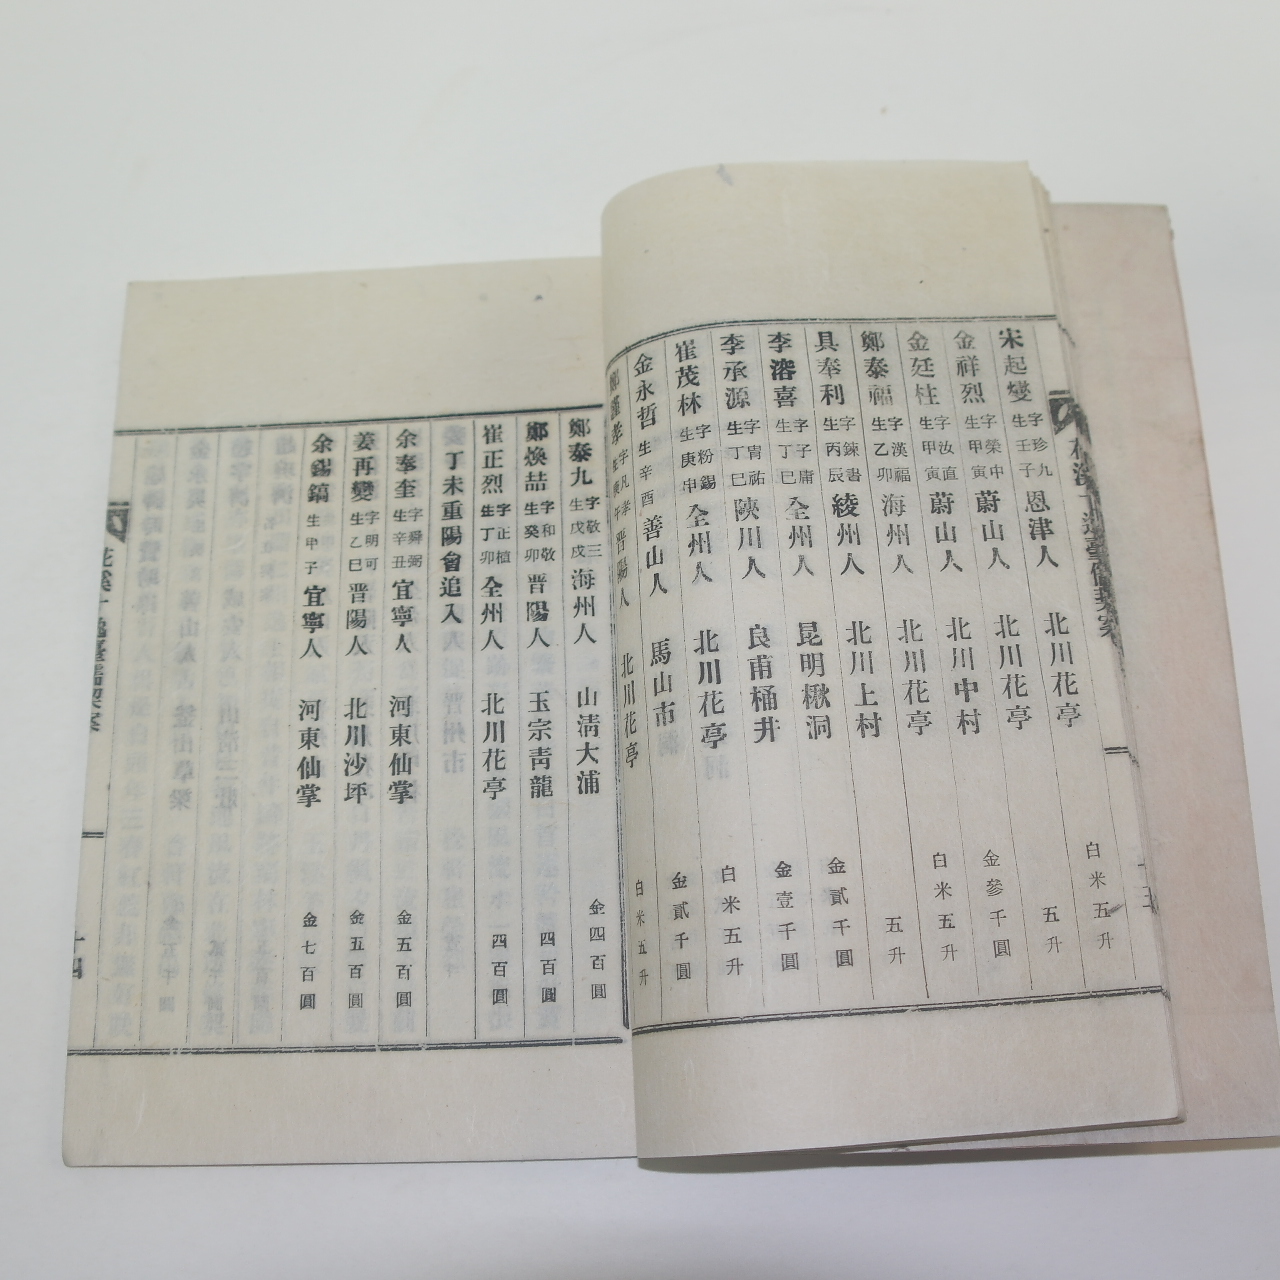 宋起燮 字珍九 生壬子 恩津人 北川花亭 白米五升
金祥烈 字榮中 生甲寅 蔚山人 北川花亭 五升
金廷柱 字汝直 生甲寅 蔚山人 北川中村 金參千圓
鄭泰福 字漢福 生乙卯 海州人 北川花亭 白米五升
具奉利 字鍊書 生丙辰 綾州人 北川上村 五升
李溶喜 字子庸 生丁巳 全州人 昆明楸洞 金貳千圓
李承源 字胄祐 生丁巳 陜川人 良甫桶井 金壹千圓
崔茂林 字粉錫 生庚申 全州人 北川花亭 白米五升
金永哲 生辛酉 善山人 馬山市 金貳千圓
鄭謹孝 字凡孝 生庚午 晋陽人 北川花亭 白米五升
鄭泰九 字敬三 生戊戌 海州人 山淸大浦 金四百圓
鄭煥喆 字和敬 生癸卯 晋陽人 玉宗靑龍 四百圓
崔正烈 字正植 生丁卯 全州人 北川花亭 四百圓
丁未重陽會追入
余奉奎 字舜弼 生辛丑 宜寧人 河東仙掌 金五百圓
姜再燮 字明可 生乙巳 晋陽人 北川沙坪 金五百圓
余錫鎬 生甲子 宜寧人 河東仙掌 金七百圓
十四